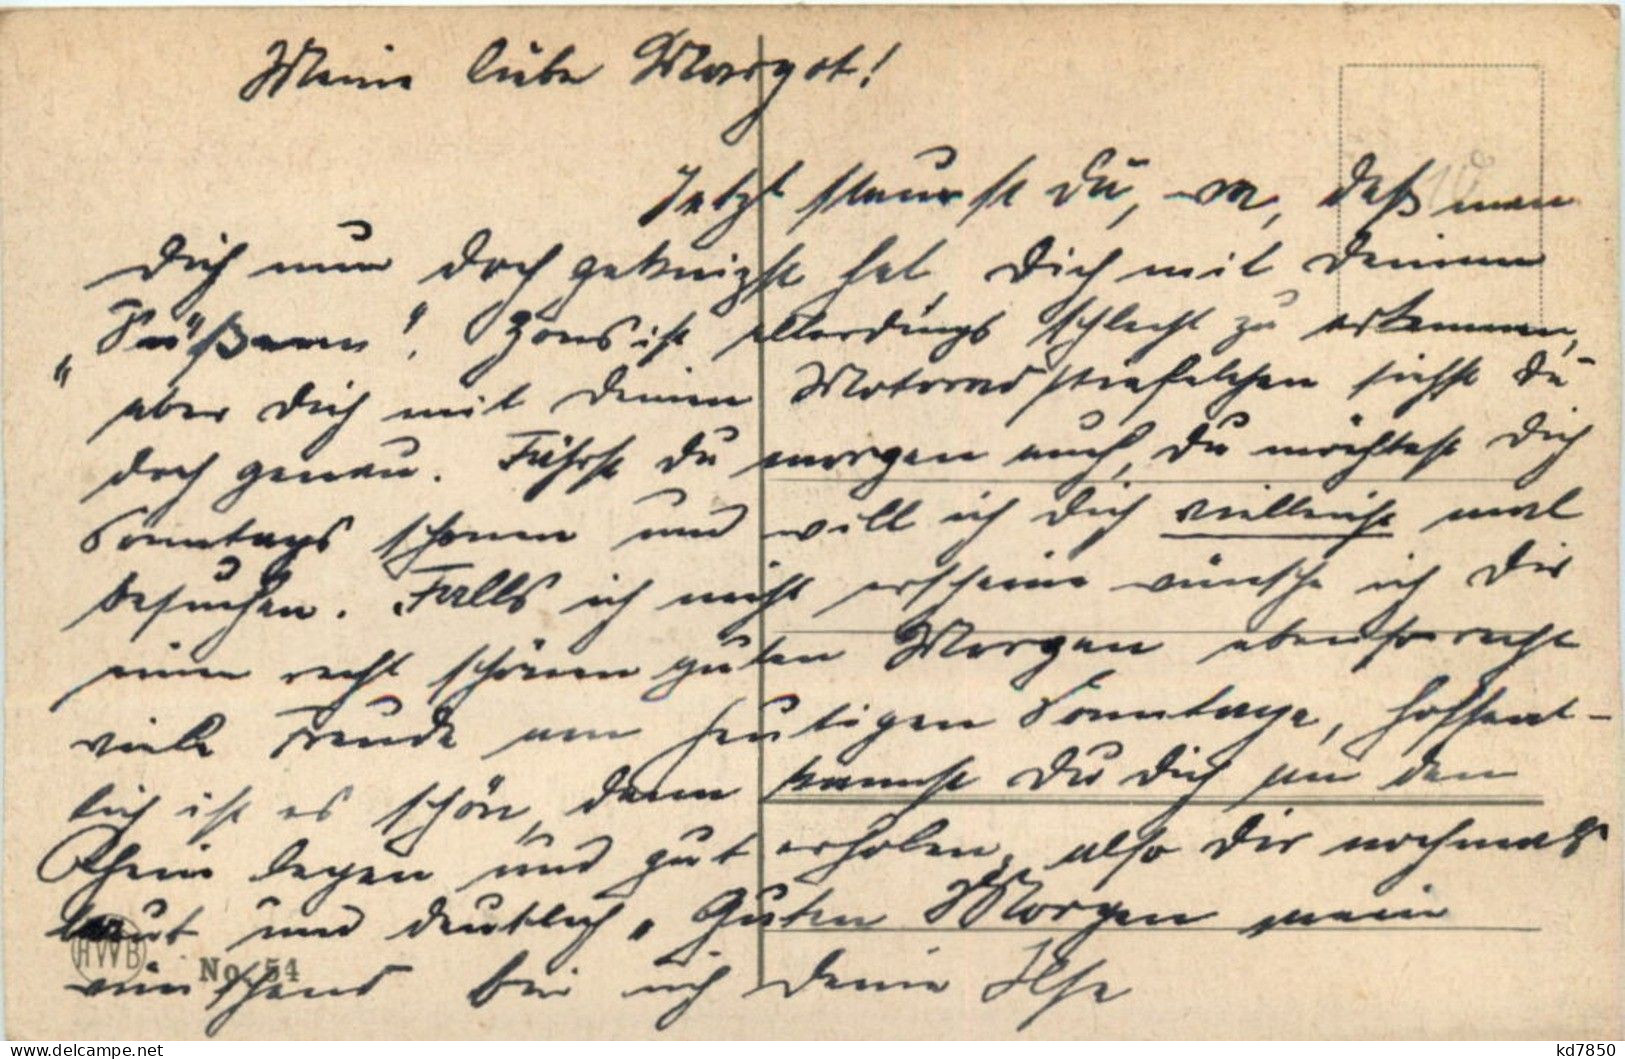 Meine liebe Margot!
Jetzt staunst Du, daß man
Dich nun doch geknipst hat, Dich mit Deinem
„Süßen"! Zons ist allerdings schlecht zu erkennen,
aber Dich mit Deinen Motorradstiefelchen siehst Du
doch genau. Fährst Du morgen auch, Du möchtest Dich
Sonntags schonen und will ich Dich vielleicht mal
besuchen. Falls ich nicht erscheine wünsche ich Dir
einen recht schönen guten Morgen ebenso recht
viele Freude am heutigen Sonntage, hoffent-
lich ist es schön, dann kannst Du Dich an den
Rhein legen und gut erholen, also Dir nochmals
laut und deutlich „Guten Morgen
wünschend bin ich Deine Ilse
HWB
No. 54
kd7850